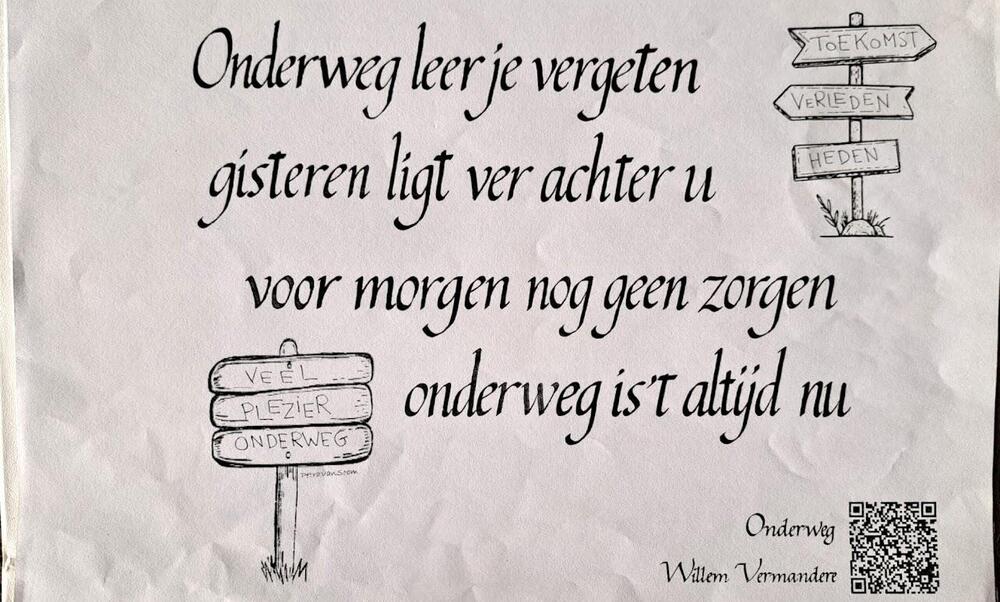 Onderweg leer je vergeten
gisteren ligt ver achter u
voor morgen nog geen zorgen
onderweg is't altijd nu
TOEKOMST
VERLEDEN
HEDEN
VEEL
PLEZIER
ONDERWEG
Onderweg
Willem Vermandere